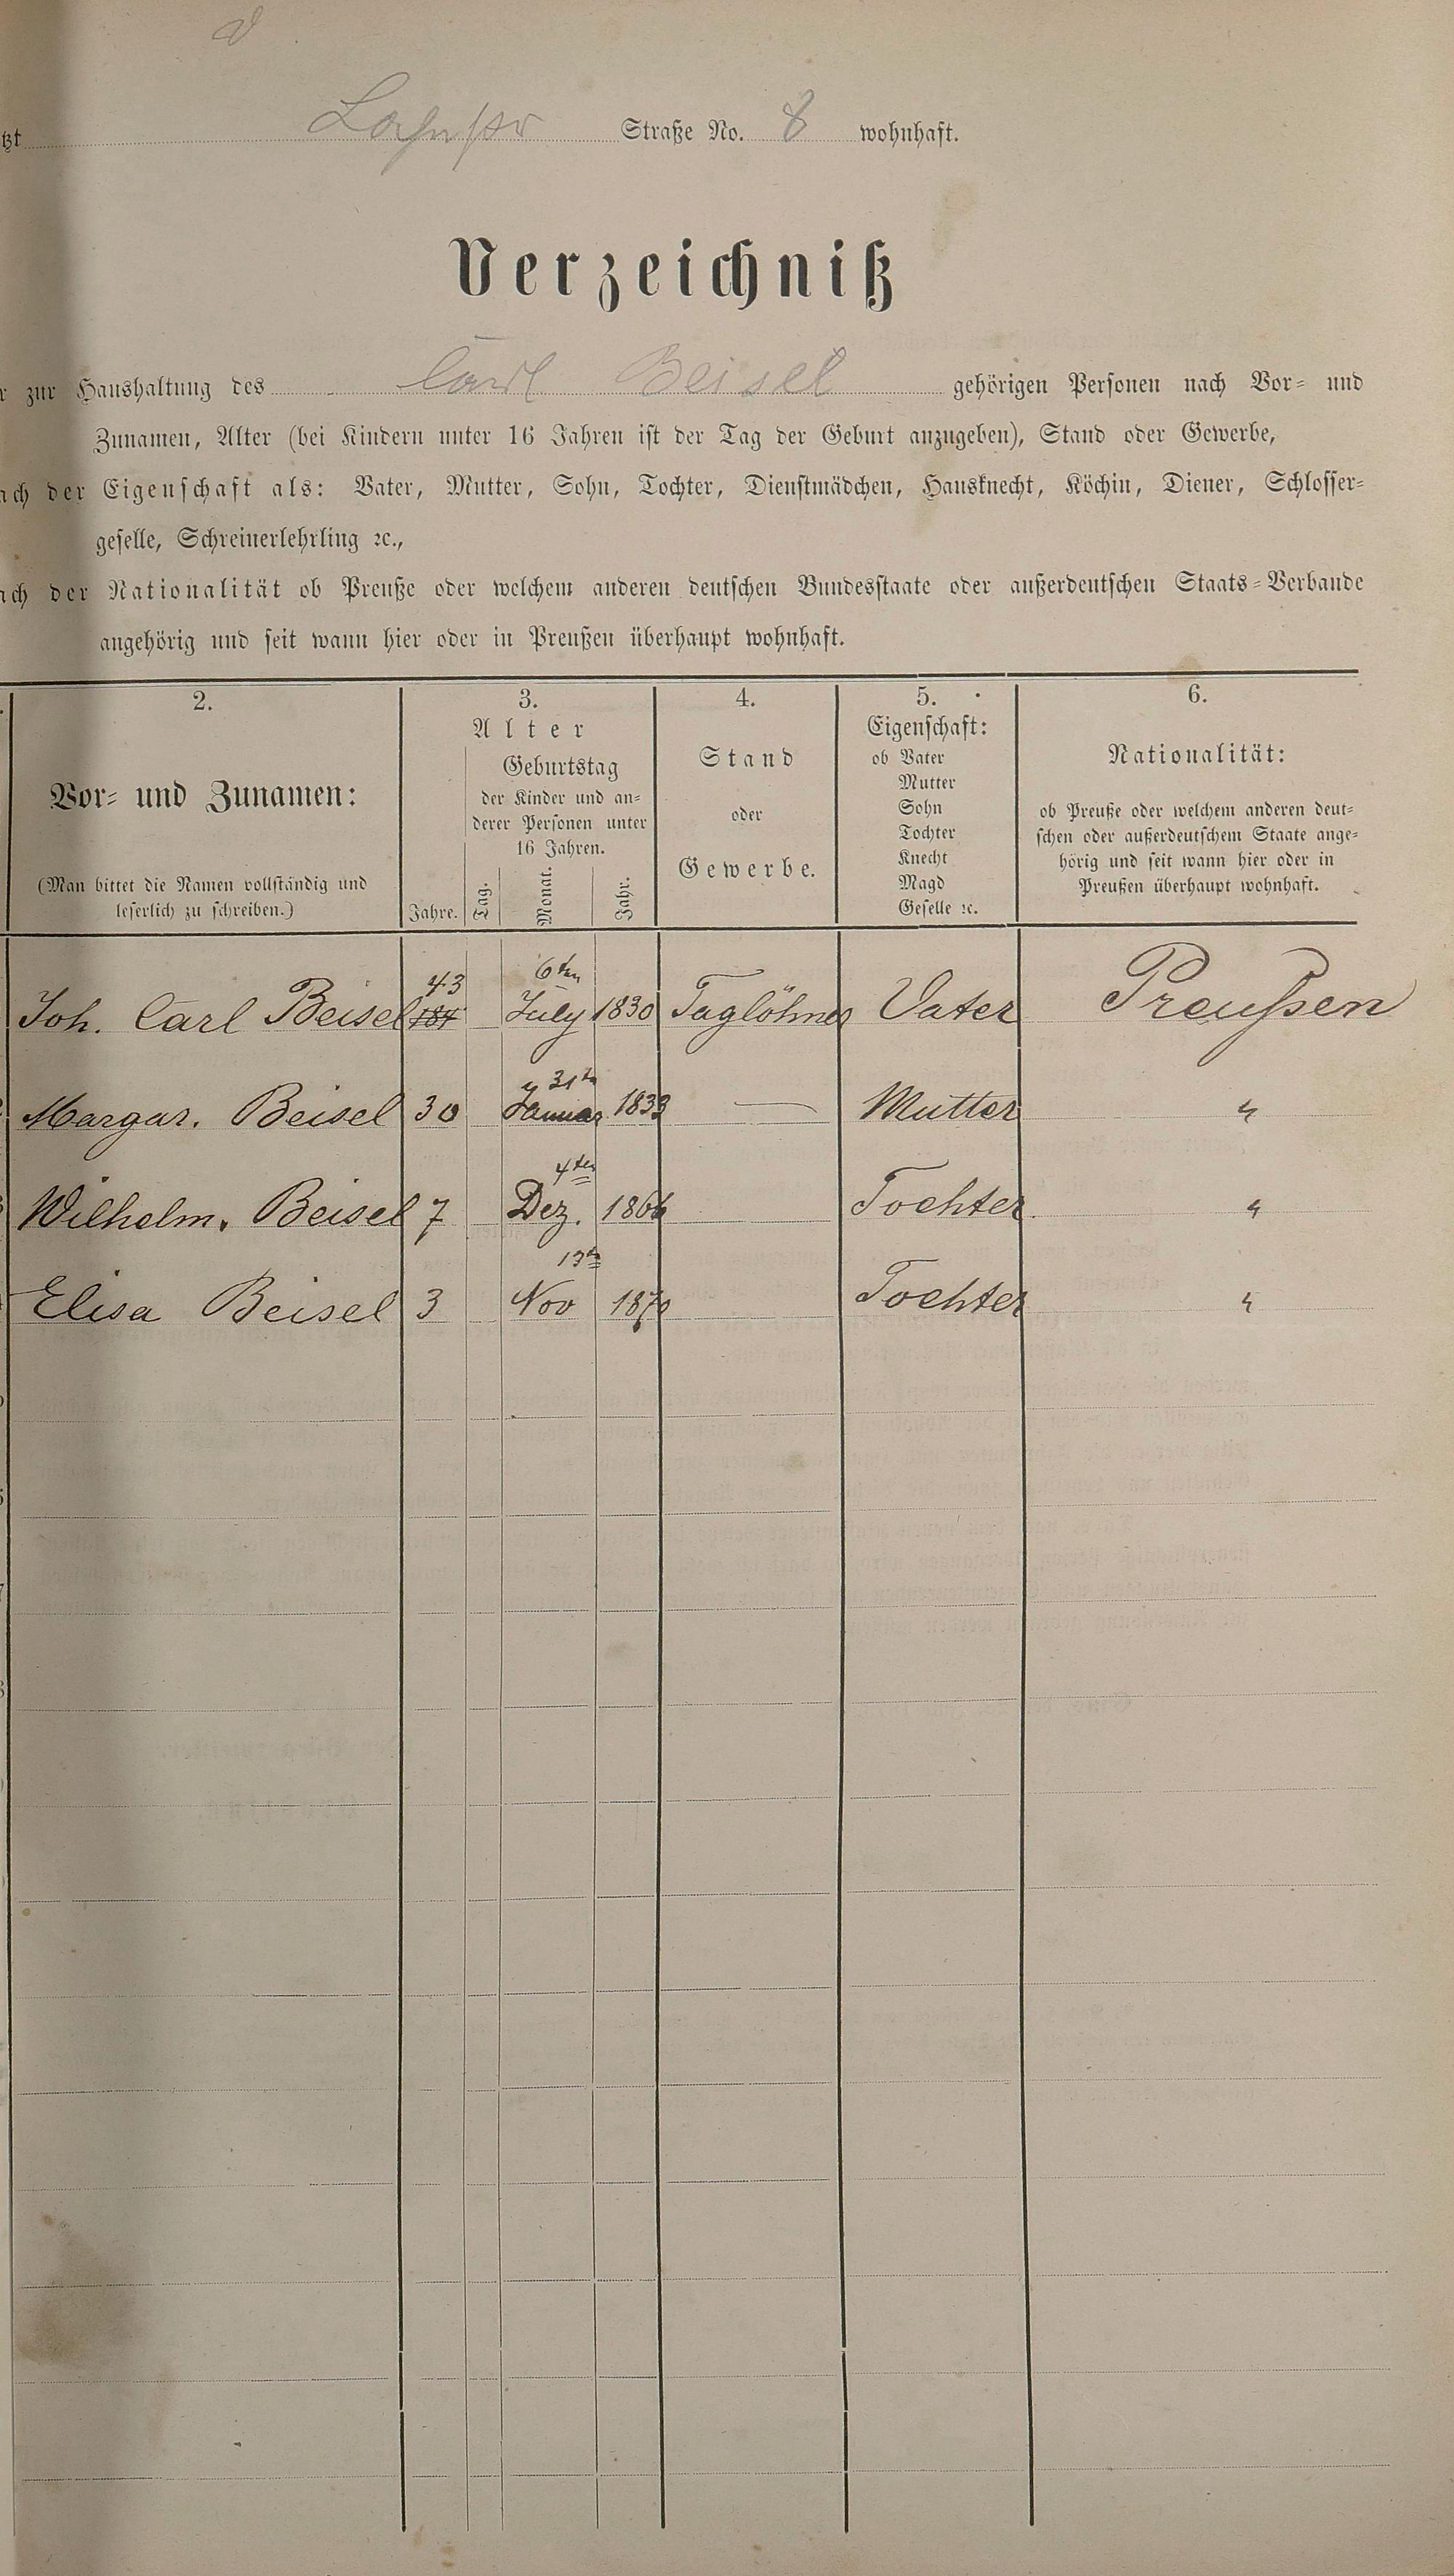 tzt Lahnstr Straße No. 8 wohnhaft.
Verzeichniß
r zur Haushaltung des Carl Beisel gehörigen Personen nach Vor- und
Zunamen, Alter (bei Kindern unter 16 Jahren ist der Tag der Geburt anzugeben), Stand oder Gewerbe,
ach der Eigenschaft als: Vater, Mutter, Sohn, Tochter, Dienstmädchen, Hausknecht, Köchin, Diener, Schlosser-
geselle, Schreinerlehrling ꝛc.,
ach der Nationalität ob Preuße oder welchem anderen deutschen Bundesstaate oder außerdeutschen Staats-Verbande
angehörig und seit wann hier oder in Preußen überhaupt wohnhaft.
2.
Vor- und Zunamen:
(Man bittet die Namen vollständig und
leserlich zu schreiben.)
3.
Alter
Geburtstag
der Kinder und an-
derer Personen unter
16 Jahren.
Jahre. Tag. Monat. Jahr.
4.
Stand
oder
Gewerbe.
5.
Eigenschaft:
ob Vater
Mutter
Sohn
Tochter
Knecht
Magd
Geselle ꝛc.
6.
Nationalität:
ob Preuße oder welchem anderen deut-
schen oder außerdeutschem Staate ange-
hörig und seit wann hier oder in
Preußen überhaupt wohnhaft.
43 6ten
Joh. Carl Beisel July 1830 Taglöhner Vater Preußen
31ten
Margar. Beisel 30 Januar 1833 — Mutter "
4ten
Wilhelm. Beisel 7 Dez. 1866 Tochter "
13t
Elisa Beisel 3 Nov 1870 Tochter "